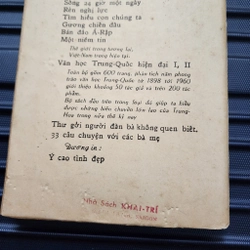 Sống 24 giờ một ngày
Rèn nghị lực
Tìm hiểu con chúng ta
Gương chiến đấu
Bán đảo Ả-Rập
Một niềm tin
Thế giới trong tương lai,
Việt-Nam trong hiện tại.
Văn học Trung-Quốc hiện đại I, II
Toàn bộ gồm 600 trang, phân tích năm phong
trào văn học Trung-Quốc từ 1898 tới 1960
giới thiệu khoảng 50 tác giả và trên 200 tác
phẩm.
Bộ sách đầu tiên trong loại đó giúp ta hiểu
được những chuyển biến lớn của Trung-
Hoa trong nửa thế kỉ nay
Thư gởi người đàn bà không quen biết.
33 câu chuyện với các bà mẹ
Đương in:
Ý cao tình đẹp
Nhà Sách KHAI-TRÍ